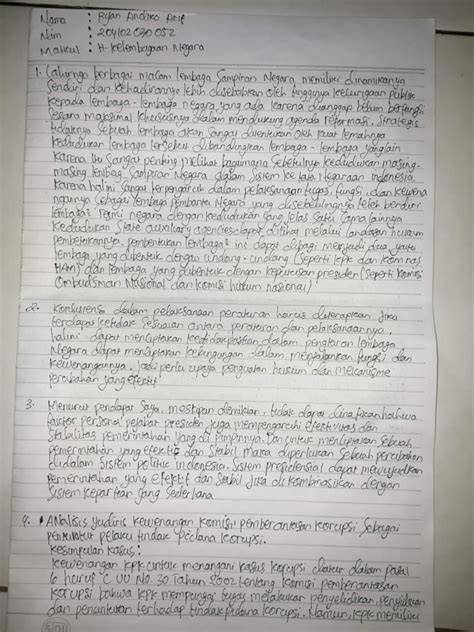 Nama : Ryan Andiko Arif
Nim : 204102030052
Matkul : H. Kelembagaan Negara
1. Lahirnya berbagai macam lembaga Sampiran Negara memiliki dinamikanya
Sendiri dan Kehadirannya lebih disebabkan oleh tingginya kecurigaan publik
kepada lembaga - lembaga negara yang ada karena dianggap belum berfungsi
secara maksimal khususnya dalam mendukung agenda reformasi. Strategis
tidaknya sebuah lembaga akan Sangat ditentukan oleh kuat lemahnya
kedudukan lembaga tersebut dibandingkan lembaga - lembaga yang lain
karena itu Sangat penting melihat bagaimana Sebetulnya kedudukan masing-
masing lembaga Sampiran Negara dalam Sistem ketatanegaraan Indonesia
karena hal ini Sangat berpengaruh dalam pelaksanaan tugas, fungsi, dan kewena
ngannya Sebagai lembaga pembantu Negara yang disebetulnya telah berdiri
lembaga2 resmi negara dengan kedudukan yang jelas satu sama lainnya
kedudukan State auxiliary agencies dapat dilihat melalui landasan hukum
pembentukannya. pembentukan lembaga2 ini dapat dibagi menjadi dua yaitu
lembaga yang dibentuk dengan undang-undang (Seperti kpk dan komnas
HAM) dan lembaga yang dibentuk dengan keputusan presiden (seperti Komisi
Ombudsman Nasional dan komisi hukum nasional)
2. Konsistensi dalam pelaksanaan peraturan harus diterapkan Jika
terdapat ketidak sesuaian antara peraturan dan pelaksanaannya.
hal ini dapat menciptakan ketidakpastian dalam pengaturan lembaga
Negara dapat menciptakan kebingungan dalam menjalankan fungsi dan
kewenangannya. Jadi perlu upaya penguatan hukum dan mekanisme
perubahan yang efektif
3. Menurut pendapat Saya, meskipun demikian tidak dapat dinafikan bahwa
faktor personal pejabat presiden juga mempengaruhi efektivitas dan
Stabilitas pemerintahan yang di pimpinnya. Dan untuk menciptakan sebuah
pemerintahan yang efektif dan Stabil maka diperlukan Sebuah perubahan
didalam Sistem politik Indonesia. Sistem presidensial dapat mewujudkan
Pemerintahan yang efektif dan Stabil Jika di kombinasikan dengan
Sistem kepartaian yang Sederhana
4. Analisis yudiris kewenangan komisi pemberantasan korupsi Sebagai
penuntut pelaku tindak pidana korupsi.
Kesimpulan kasus :
Kewenangan kpk untuk menangani kasus korupsi diatur dalam pasal
6 huruf C UU No. 30 Tahun 2002 tentang komisi pemberantasan
korupsi bahwa kpk mempunyai tugas melakukan penyelidikan, penyidikan
dan penuntutan terhadap tindak pidana korupsi. Namun, kpk memiliki